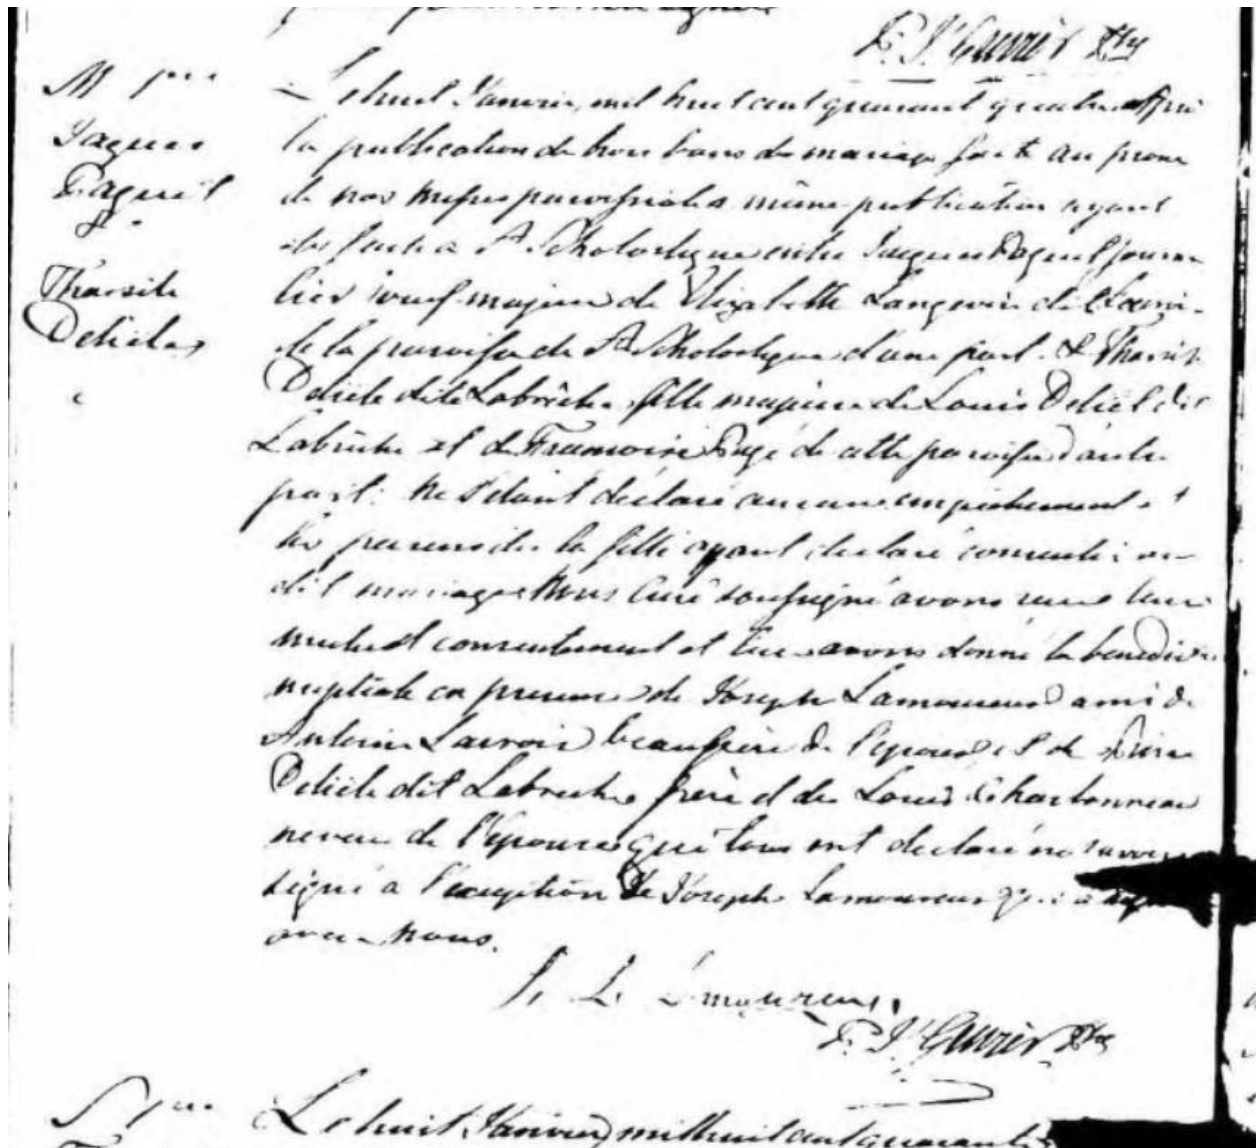 M
Jaques
Paquet
&
Tharsile
Deliele
Le huit Janvier mil huit cent quarant quatre après
la publication de trois bans de mariage faite au prone
de nos messes paroissiales même publication ayant
été faite à Ste Scholastique entre Jaques Paquet journa
lier veuf majeur de Elizabeth Langevin dit
de la paroisse de Ste Scholastique d'une part. & Tharsile
Deliele dite Labrèche fille majeure de Louis Deliel dit
Labrèche et de Francoise Pagé de cette paroisse d'autre
part: Ne s'étant déclaré aucun empêchement et
les parens de la fille ayant declaré consentir au
dit mariage Nous Curé soussigné avons reçu leur
mutuel consentement et leur avons donné la benedic
nuptiale en presence de Joseph Lamoureux ami de
Antoine Lacroix beaufrère de l'epoux et de
Deliele dit Labreche frère et de Louis Charbonneau
neveu de l'épouse qui tous ont declaré ne savoir
signé à l'exception de Joseph Lamoureux qui a signé
avec nous.
Le huit Janvier mil huit cent quarante